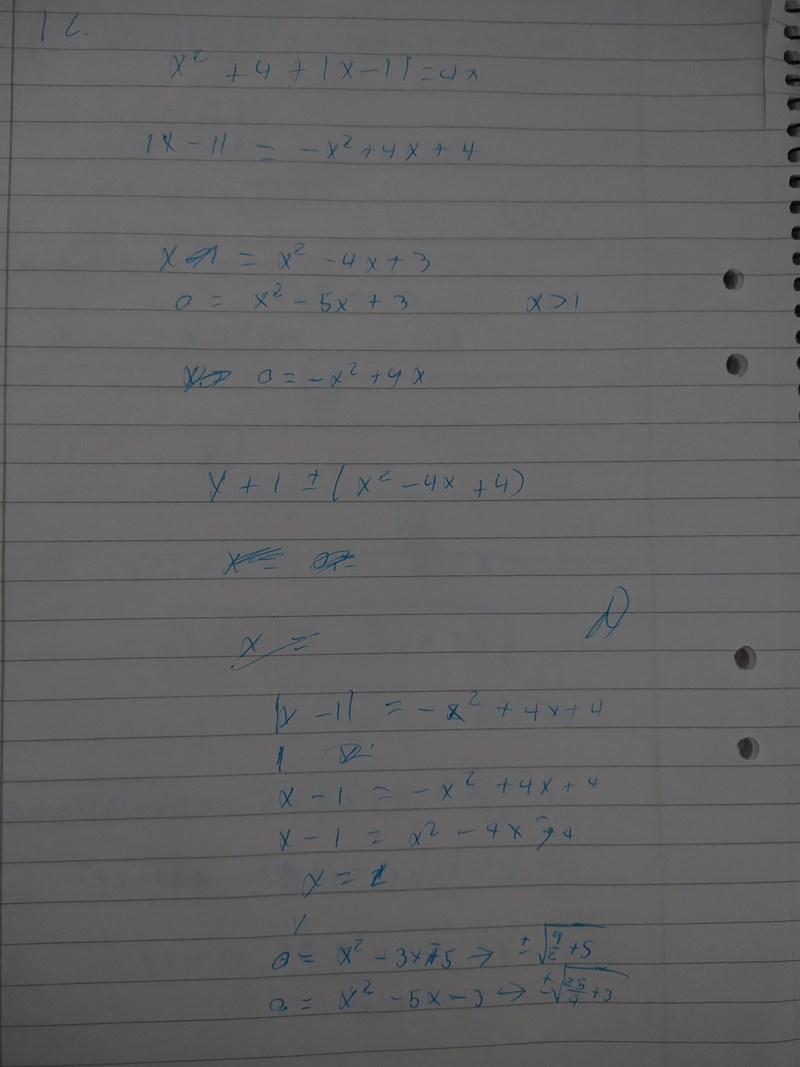 12.
x² + 4 + |x-1| = 4x
|x-1| = -x² + 4x + 4
x-1 = x² - 4x + 3
0 = x² - 5x + 3 x > 1
0 = -x² + 4x
x + 1 ± (x² - 4x + 4)
x =
|x-1| = -x² + 4x + 4
x - 1 = -x² + 4x + 4
x - 1 = x² - 4x - 4
x =
0 = x² - 3x - 5 → ±√(9/2 + 5)
0 = x² - 5x - 3 → ±√(25/4 + 3)